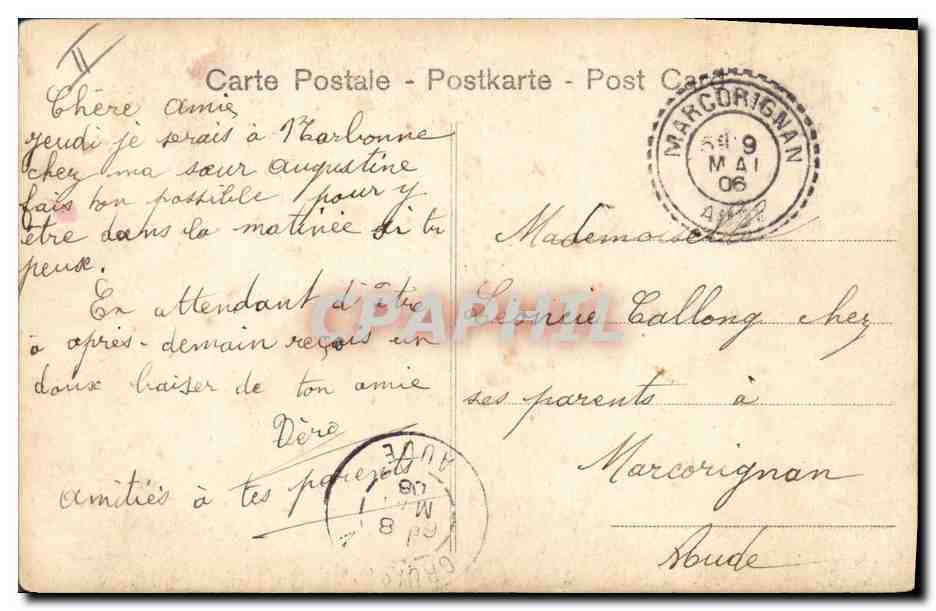 Carte Postale - Postkarte - Post Card
Chère amie
jeudi je serais à Narbonne
chez ma sœur augustine
fais ton possible pour y
être dans la matinée si tu
peux.
En attendant d'être
à après-demain reçois un
doux baiser de ton amie
amitiés à tes parents
MARCORIGNAN
9
MAI
06
Mademoiselle
Léoncie Tallong chez
ses parents à
Marcorignan
Aude
AUDE
8
CPAPHIL